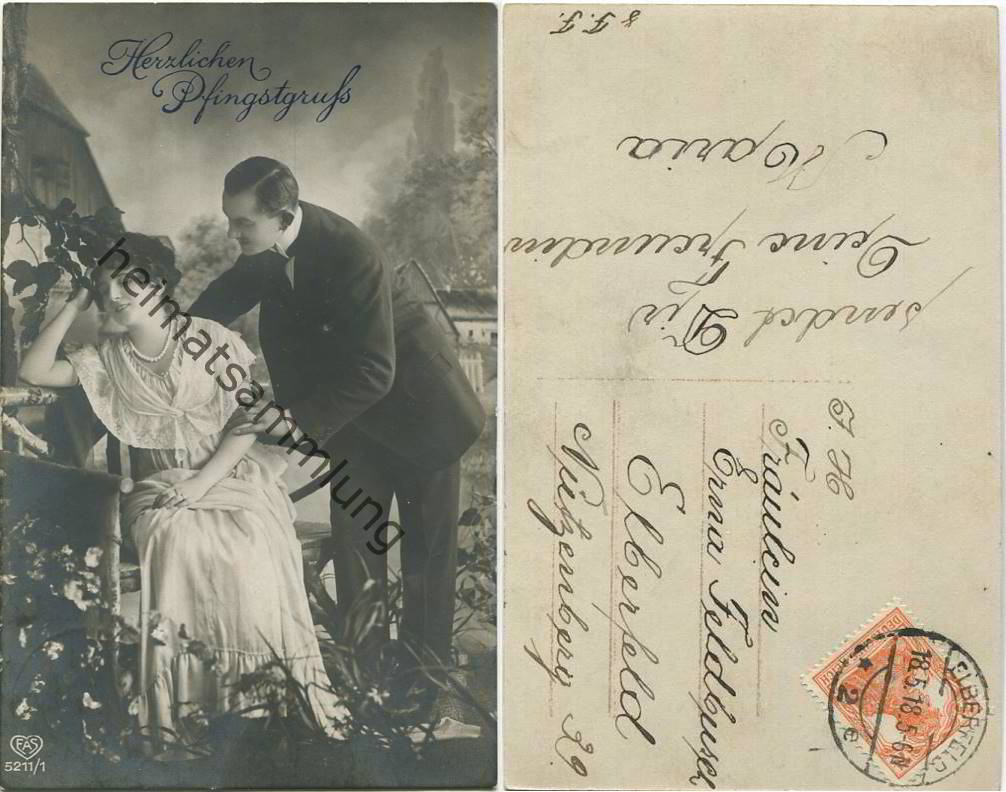 Herzlichen
Pfingstgruß
heimatsammlung
EAS
5211/1
F. F.
sendet Dir
Deine Freundin
Maria
F. H.
Fräulein
Erna Feldbusch
Elberfeld
Nützenberg
ELBERFELD
18.5.18.5-6N
* 2 e